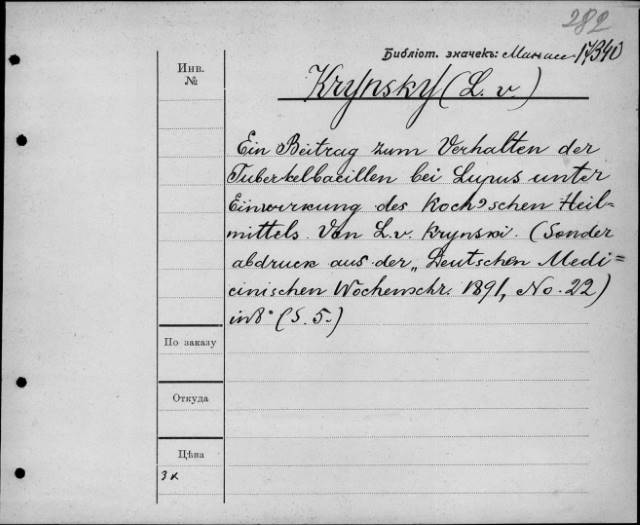 282
Библіот. значекъ: Манасс 17/340
Инв.
№
Krynsky (L. v)
Ein Beitrag zum Verhalten der
Tuberkelbacillen bei Lupus unter
Einwirkung des Koch'schen Heil=
mittels. Von L. v. Krynski. (Sonder
abdruck aus der „Deutschen Medi=
cinischen Wochenschr. 1891, No. 22)
in 8° (S. 5.)
По заказу
Откуда
Цѣна